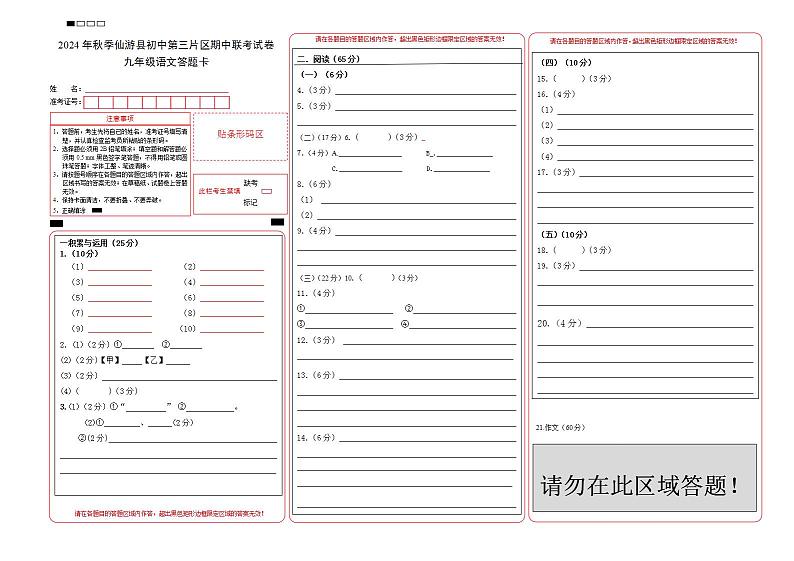 2024 年秋季仙游县初中第三片区期中联考试卷
九年级语文答题卡
姓　名：
准考证号：
注意事项
1、答题前，考生先将自己的姓名、准考证号填写清
楚，并认真检查监考员所粘贴的条形码。
2、选择题必须用 2B 铅笔填涂；填空题和解答题必
须用 0.5 mm 黑色签字笔答题，不得用铅笔或圆
珠笔答题；字体工整、笔迹清晰。
3、请按题号顺序在各题目的答题区域内作答，超出
区域书写的答案无效；在草稿纸、试题卷上答题
无效。
4、保持卡面清洁，不要折叠、不要弄破。
5、正确填涂
贴条形码区
此栏考生禁填
缺考
标记
一积累与运用（25分）
1.（10分）
（1）
（2）
（3）
（4）
（5）
（6）
（7）
（8）
（9）
（10）
2.（1）（2 分）① ②
（2）（2 分）【甲】 【乙】
（3）（2 分）
（4）（ ）（3 分）
3.（1）（2 分）①“ ” ② 。
（2）① 、 （2 分）
②（2 分）
请在各题目的答题区域内作答，超出黑色矩形边框限定区域的答案无效！
请在各题目的答题区域内作答，超出黑色矩形边框限定区域的答案无效！
二．阅读（65 分）
（一）（6 分）
4.（3 分）
5.（3 分）
（二）（17 分）6.（ ）（3 分）
7.（4 分）A. B.
C. D.
8.（6 分）
（1）
（2）
9.（4 分）
（三）（22 分）10.（ ）（3 分）
11.（4 分）
① ②
③ ④
12.（3 分）
13.（6 分）
14.（6 分）
请在各题目的答题区域内作答，超出黑色矩形边框限定区域的答案无效！
（四）（10 分）
15.（ ）（3 分）
16.（4 分）
（1）
（2）
（3）
（4）
17.（3 分）
（五）（10 分）
18.（ ）（3 分）
19.（3 分）
20.（4 分）
21.作文（60 分）
请勿在此区域答题！